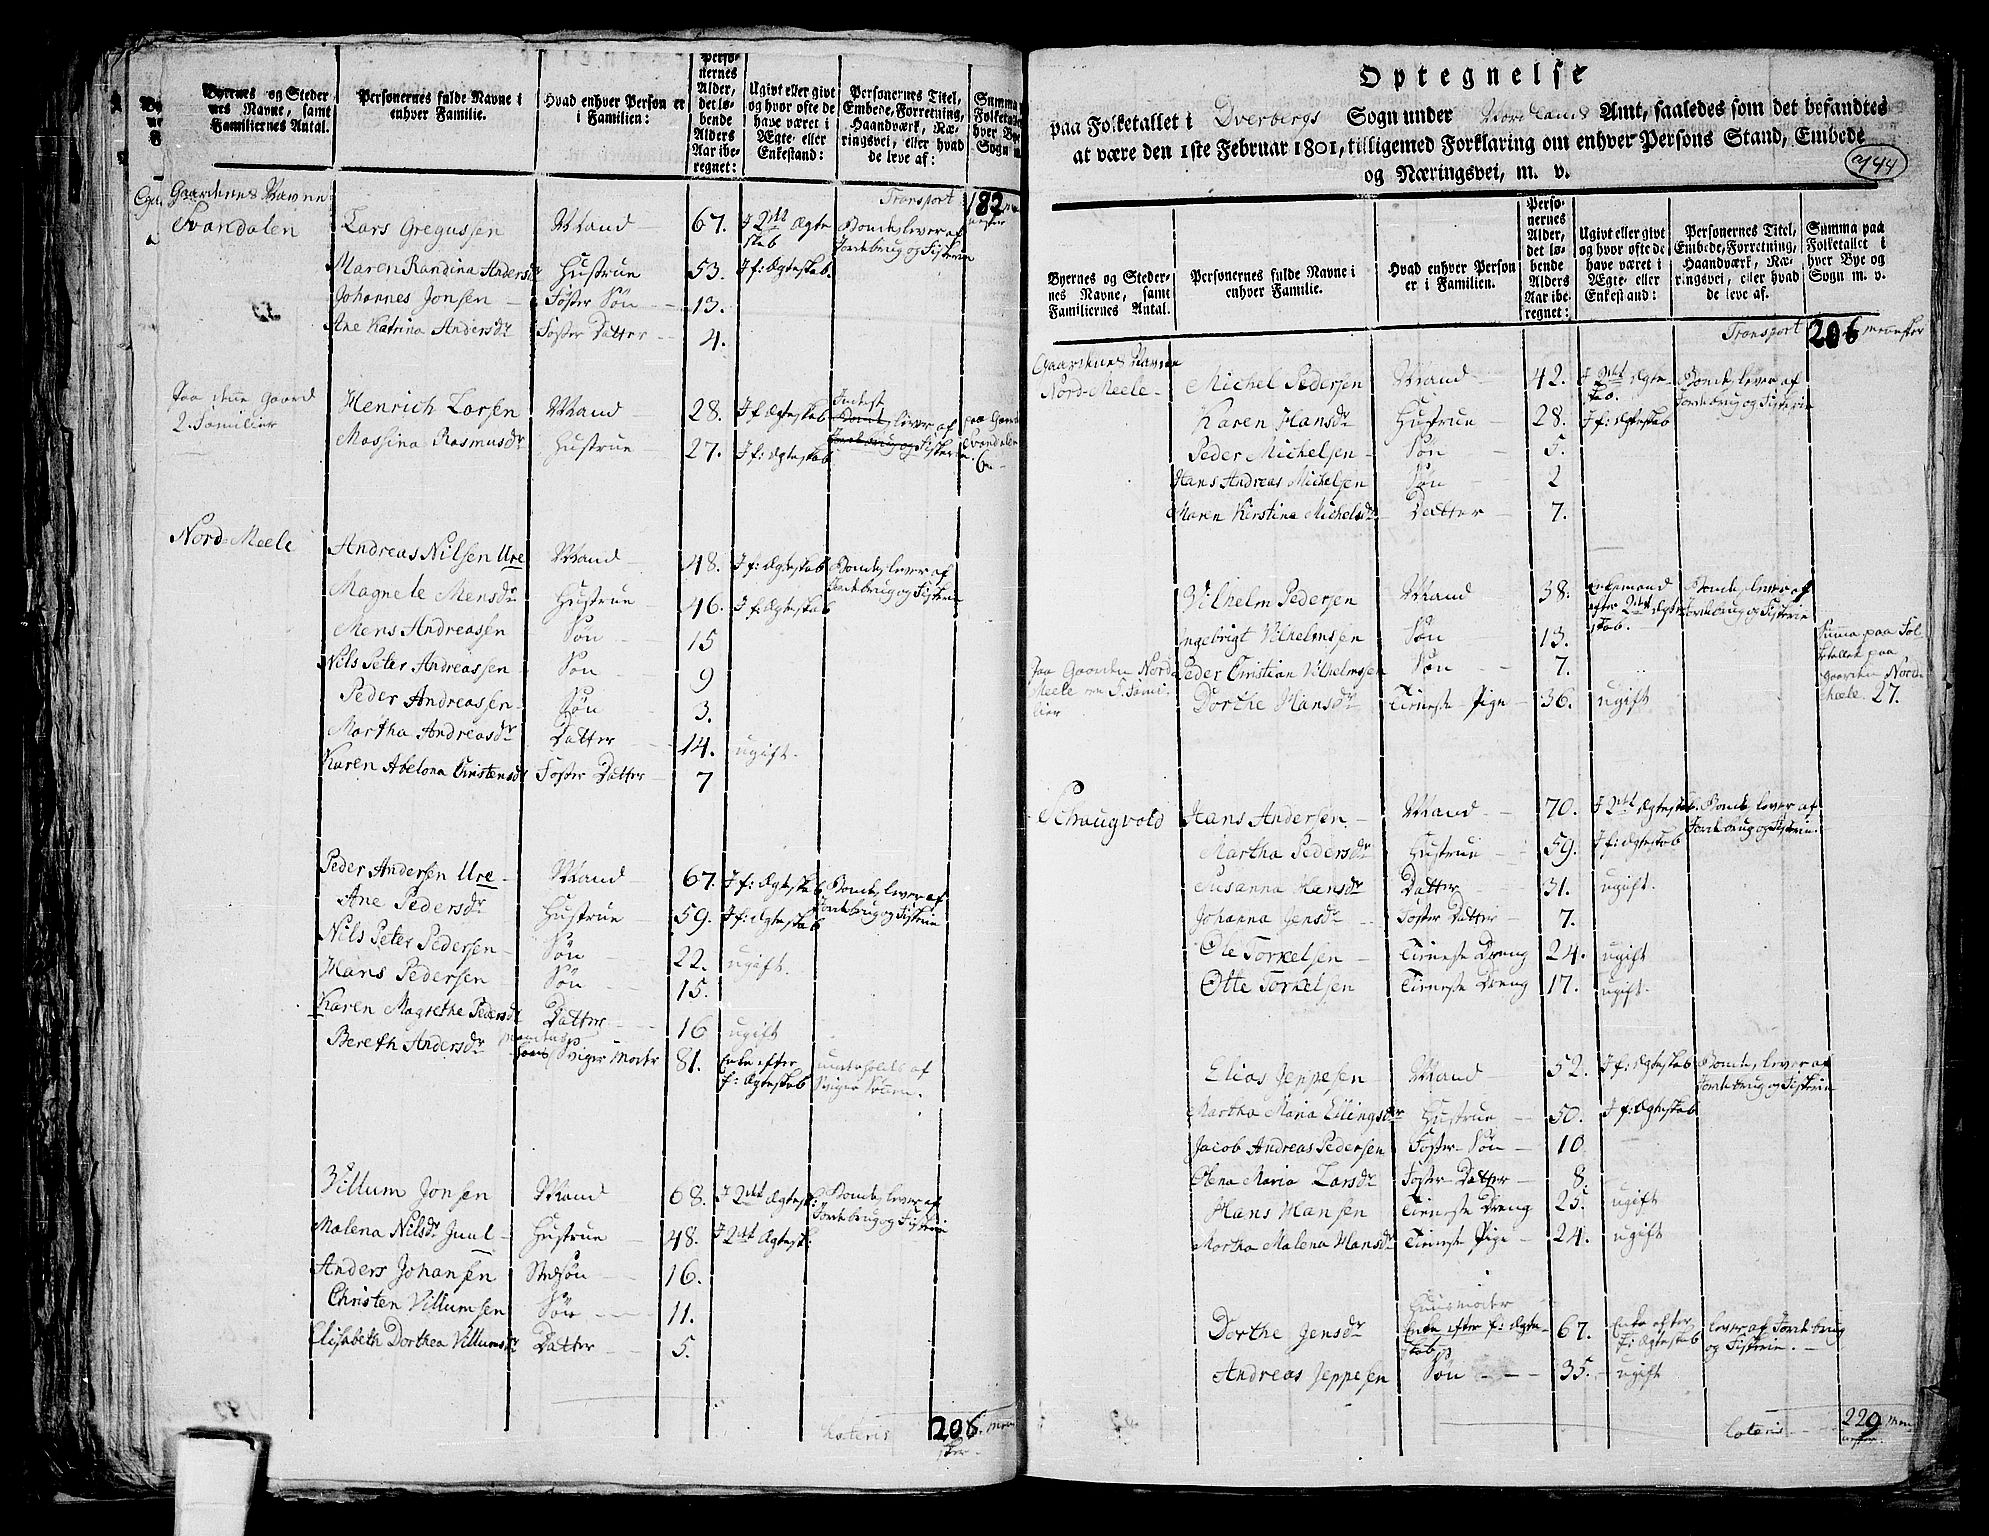 Byernes og Steder-
nes Navne, samt
Familiernes Antal.
Personernes fulde Navne i
enhver Familie.
Hvad enhver Person er
i Familien:
Perso-
nernes
Alder,
det lø-
bende
Alders
Aar ibe-
regnet:
Ugivt eller givt
og hvor ofte de
have været i
Ægte- eller
Enkestand:
Personernes Titel,
Embede, Forretning,
Haandværk, Næ-
ringsvei, eller hvad
de leve af:
Summa
Folketallet
hver Bye
Sogn m.
Gaardenes Navne Transport 182
Svandalen Lars Gregussen Mand 67. I 2det Ægte Bonde, lever af
skab Jordebrug og Fiskerie
Maren Randina Andersdr Hustrue 53. I f: Ægteskab.
Johannes Jonsen Foster Søn 13.
Ane Katrina Andersdr Foster Datter 4.
Paa denne Gaard Henrich Larsen Mand 28. I f: Ægteskab Inderst
2. Familier Bonde, lever af paa Gaard
Massina Rasmusdr Hustrue 27. I f: Ægteskab Jordebrug og Fiskerie Svandalen
6
Nord-Meele Andreas Nilsen Ure Mand 48. I f: Ægteskab Bonde, lever af
Magnele Mensdr Hustrue 46. I f: Ægteskab Jordebrug og Fiskerie
Mens Andreassen Søn 15
Nils Peter Andreassen Søn 9
Peder Andreassen Søn 3.
Martha Andreasdr Datter 14. ugift.
Karen Abelona Christensdr Foster Datter 7
Peder Andersen Ure Mand 67. I f: Ægteskab Bonde, lever af
Ane Pedersdr Hustrue 59. I f: Ægteskab Jordebrug og Fiskerie
Nils Peter Pedersen Søn 22. ugift.
Hans Pedersen Søn 15.
Karen Magrethe Pedersdr Datter 16 ugift
Bereth Andersdr Mandens
Sviger Moder 81. Enke efter underholdes af
f: Ægteskab Sviger Sønnen.
Villum Jonsen Mand 68. I 2det Ægtesk: Bonde, lever af
Malena Nilsdr Juul Hustrue 48. I 2det Ægtesk: Jordebrug og Fiskerie
Anders Johansen Stedsøn 16.
Christen Villumsen Søn 11.
Elisabeth Dorthea Villumsdr Datter 5.
Lateris 206.
Optegnelse
paa Folketallet i Dverbergs Sogn under Nordlands Amt, saaledes som det befandtes
at være den 1ste Februar 1801, tilligemed Forklaring om enhver Persons Stand, Embede
og Næringsvei, m. v.
744
Byernes og Steder-
nes Navne, samt
Familiernes Antal.
Personernes fulde Navne i
enhver Familie.
Hvad enhver Person
er i Familien.
Perso-
nernes
Alder,
det lø-
bende
Alders
Aar ibe-
regnet:
Ugivt eller givt
og hvor ofte de
have været i
Ægte- eller
Enkestand:
Personernes Titel,
Embede, Forretning,
Haandværk, Næ-
ringsvei, eller hvad
de leve af.
Summa paa
Folketallet i
hver Bye og
Sogn m. v.
Transport 206 mennesker
Gaardenes Navne
Nord-Meele Michel Pedersen Mand 42. I 2det Ægte- Bonde, lever af
skab. Jordebrug og Fiskerie
Karen Hansdr Hustrue 28. I f: Ægteskab
Peder Michelsen Søn 5.
Hans Andreas Michelsen Søn 2
Maren Kirstina Michelsdr Datter 7.
Vilhelm Pedersen Mand 38. Enkemand Bonde, lever af
efter 2det Ægte Jordebrug og Fiskerie
skab.
Ingebrigt Vilhelmsen Søn 13. Summa paa Fol
Peder Christian Vilhelmssen Søn 7. ketallet paa
Paa Gaarden Nord Gaarden Nord-
Meele er 5. Fami- Dorthe Hansdr Tieneste Pige 36. ugift Meele 27.
lier
Schaugvold Hans Andersen Mand 70. I 2det Ægteskab. Bonde, lever af
Martha Pedersdr Hustrue 59. I f: Ægteskab Jordebrug og Fiskerie.
Susanna Hansdr Datter 31. ugift.
Johanna Jensdr Foster Datter 7.
Ole Torkelsen Tieneste Dreng 24. ugift
Otte Torkelsen Tieneste Dreng 17. ugift.
Elias Jeppesen Mand 52. I f: Ægteskab Bonde, lever af
Jordebrug og Fiskerie
Martha Maria Ellingsdr Hustrue 50. I f: Ægteskab
Jacob Andreas Pedersen Foster-Søn 10
Olena Maria Larsdr Foster-Datter 8.
Hans Hansen Tieneste Dreng 25. ugift
Martha Malena Hansdr Tieneste Pige 24. ugift
Huusmoder
Dorthe Jensdr Enke efter f: Ægte- 67. Enke efter lever af Jordebrug
skab f: Ægteskab og Fiskerie.
Andreas Jeppesen Søn 35. ugift
Lateris 229